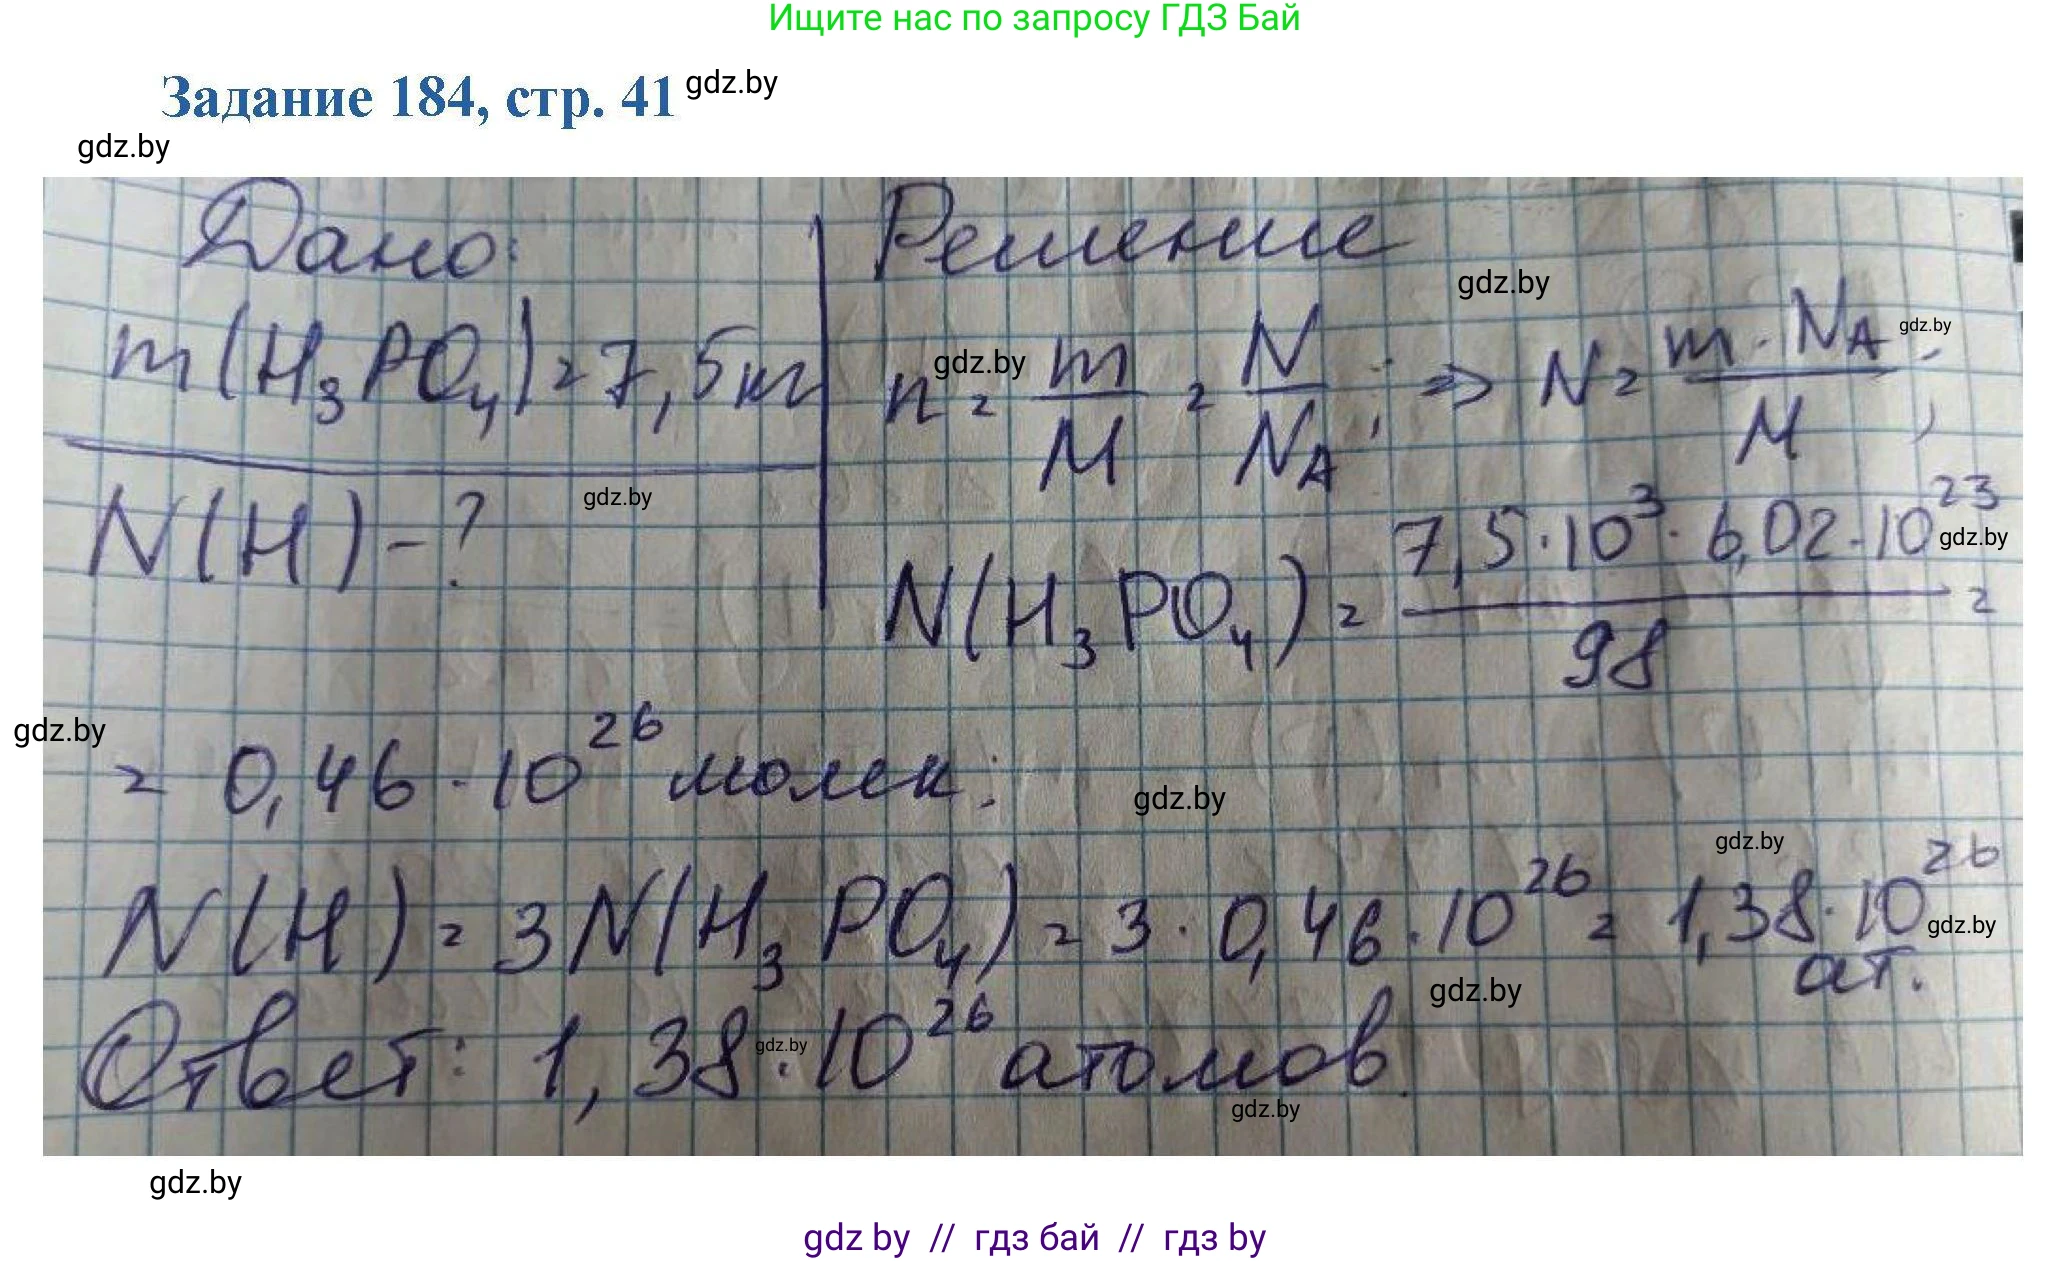 Ищите нас по запросу ГДЗ Бай
Задание 184, стр. 41 gdz.by
gdz.by
Дано:
m(H₃PO₄)=7,5кг
N(H)-?
gdz.by
Решение
gdz.by
n = m/M = N/N_A; ⇒ N = m·N_A/M;
gdz.by gdz.by
N(H₃PO₄) = 7,5·10³·6,02·10²³/98 =
gdz.by
= 0,46·10²⁶ молек;
gdz.by gdz.by
gdz.by
N(H) = 3N(H₃PO₄) = 3·0,46·10²⁶ = 1,38·10²⁶ ат.
gdz.by
gdz.by
Ответ: 1,38·10²⁶ атомов.
gdz.by
gdz.by
gdz.by
gdz by // гдз бай // гдз by